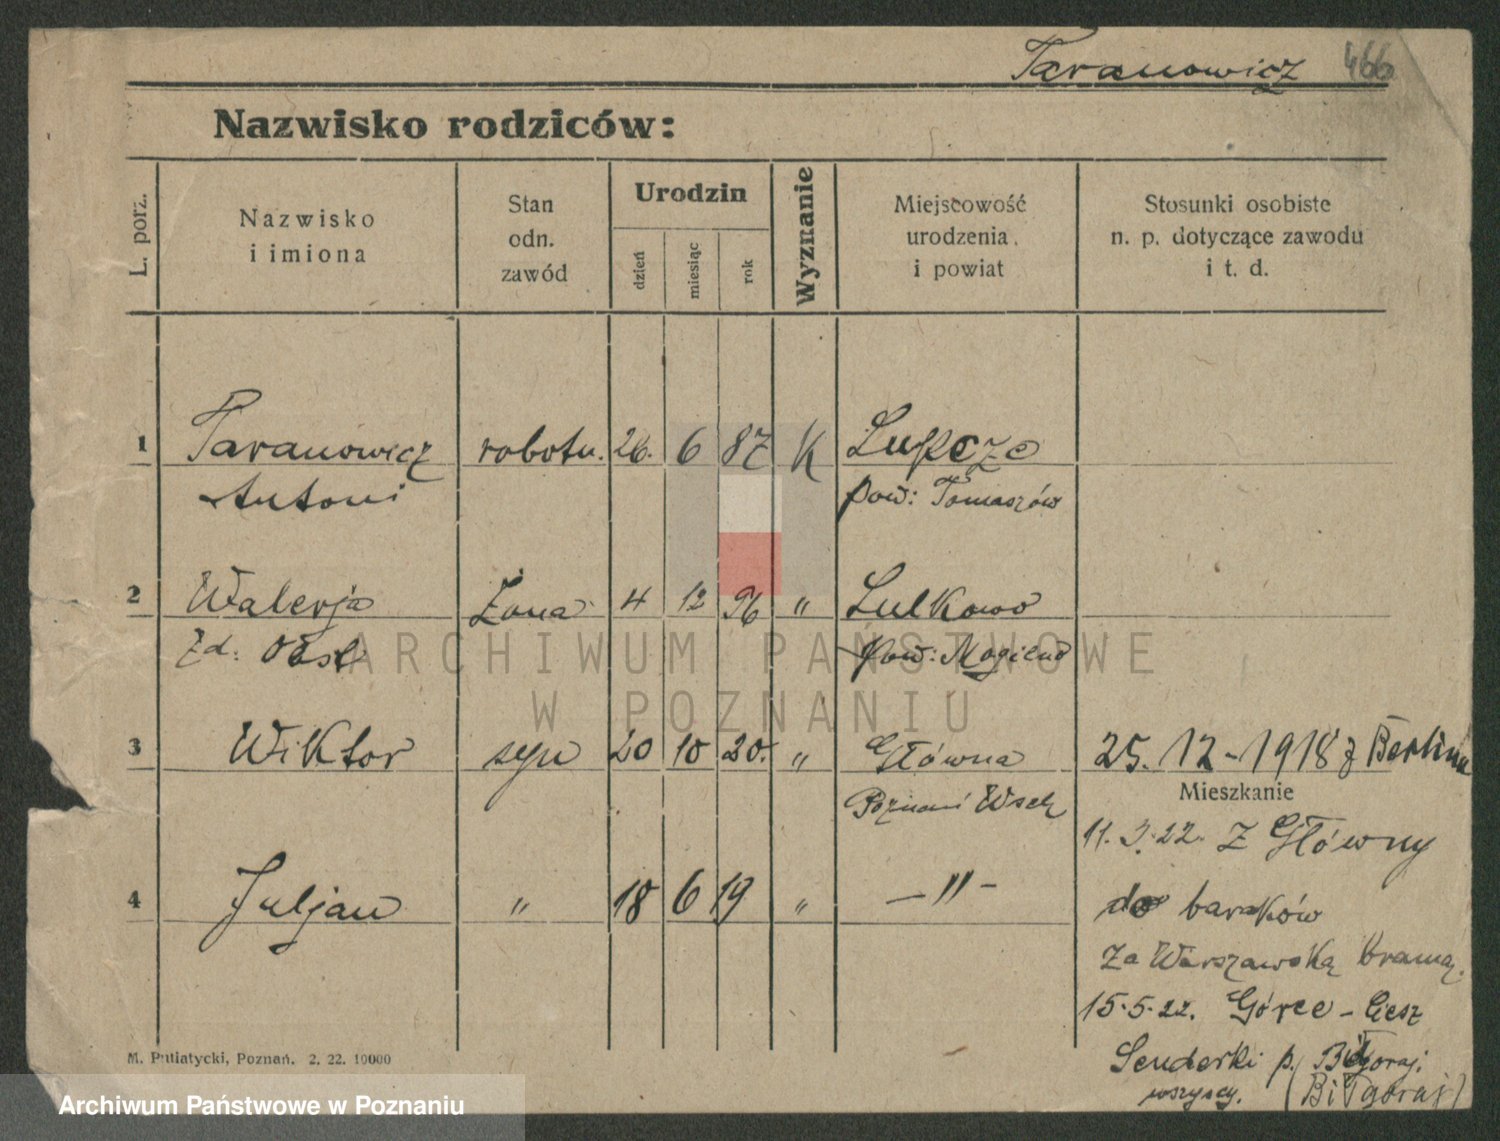 Taranowicz 466
Nazwisko rodziców:
L. porz.
Nazwisko
i imiona
Stan
odn.
zawód
Urodzin
dzień
miesiąc
rok
Wyznanie
Miejscowość
urodzenia
i powiat
Stosunki osobiste
n. p. dotyczące zawodu
i t. d.
1 Taranowicz robotn. 26. 6 87 K Łupcze
Antoni pow: Tomaszów
2 Walerja Żona 4 12 96 " Lulkowo
Zd: pow: Mogilno
3 Wiktor syn 20 10 20. " Główna 25. 12 - 1918 z Berlina
Poznań Wsch
Mieszkanie
11. 3. 22. Z Główny
4 Juljan " 18 6 19 " - " -
do baraków
za Warszawską bramą.
15.5.22. Górce -
Senderki p. Biłgoraj.
wszyscy. (Biłgoraj)
M. Putiatycki, Poznań. 2. 22. 10000
ARCHIWUM PAŃSTWOWE
W POZNANIU
Archiwum Państwowe w Poznaniu